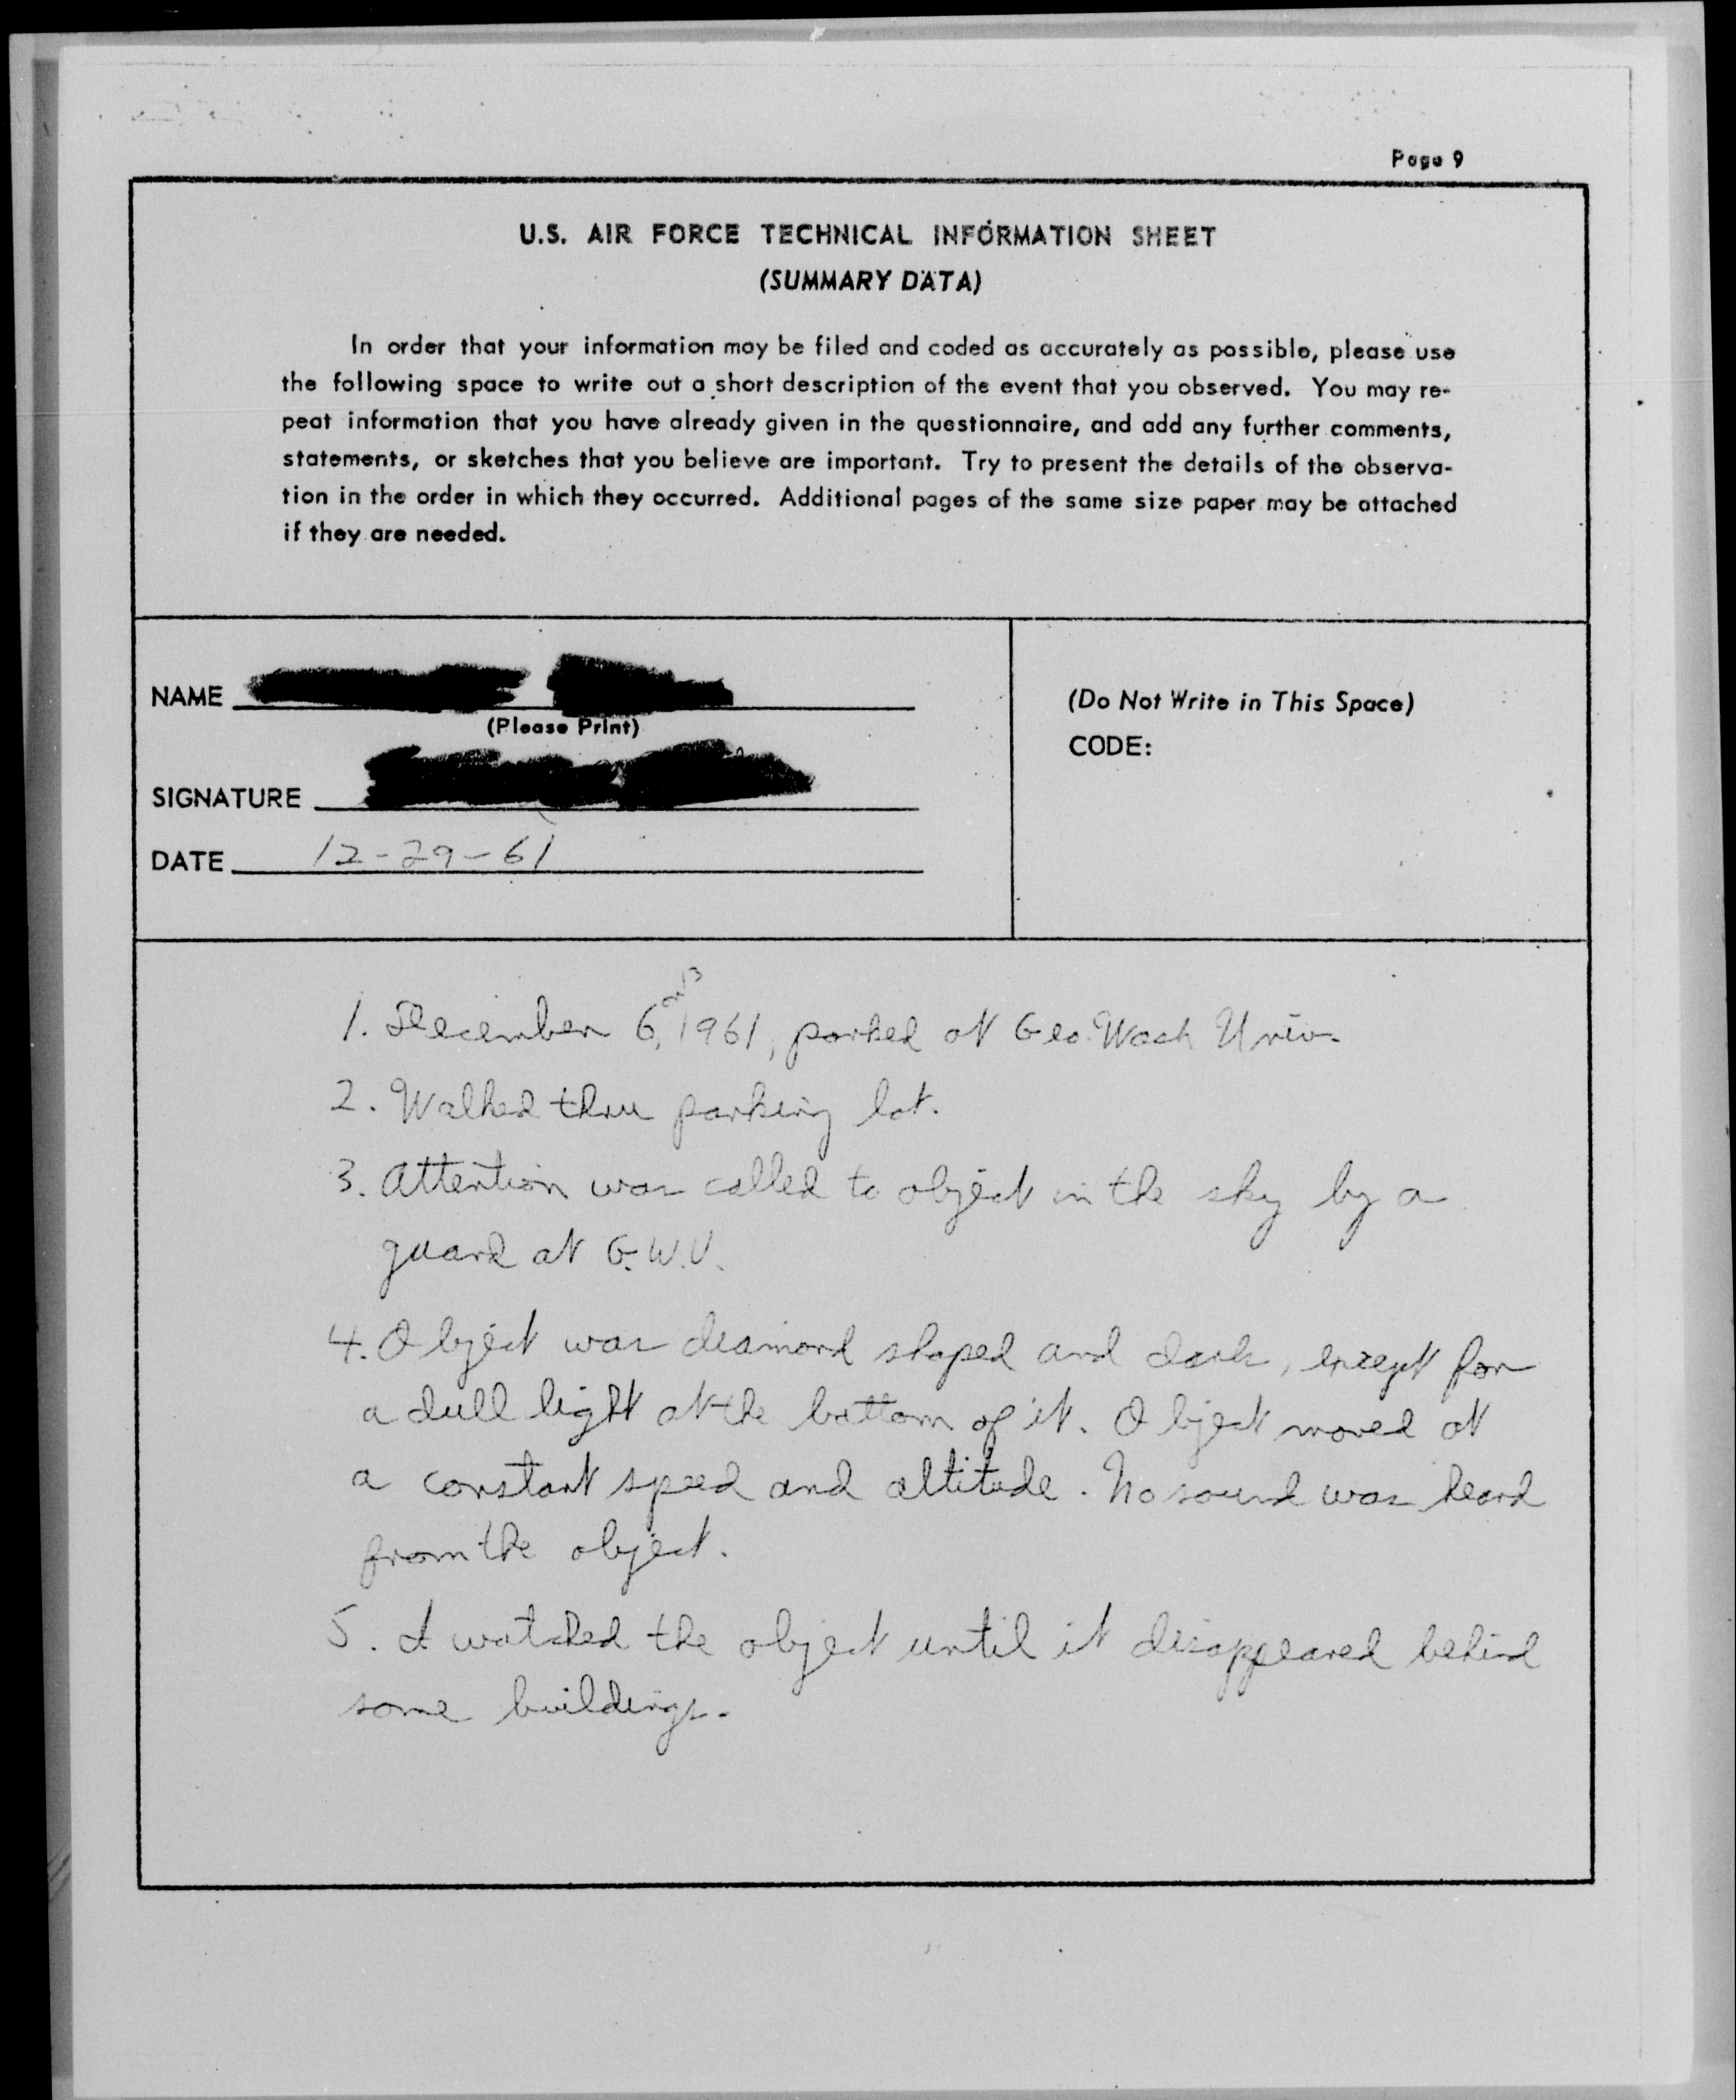 Page 9
U.S. AIR FORCE TECHNICAL INFORMATION SHEET
(SUMMARY DATA)
In order that your information may be filed and coded as accurately as possible, please use
the following space to write out a short description of the event that you observed. You may re-
peat information that you have already given in the questionnaire, and add any further comments,
statements, or sketches that you believe are important. Try to present the details of the observa-
tion in the order in which they occurred. Additional pages of the same size paper may be attached
if they are needed.
NAME
(Please Print)
SIGNATURE
DATE 12-29-61
(Do Not Write in This Space)
CODE:
or 13
1. December 6, 1961, parked at Geo Wash Univ.
2. Walked thru parking lot.
3. Attention was called to object in the sky by a
guard at G.W.U.
4. Object was diamond shaped and dark, except for
a dull light at the bottom of it. Object moved at
a constant speed and altitude. No sound was heard
from the object.
5. I watched the object until it disappeared behind
some buildings.